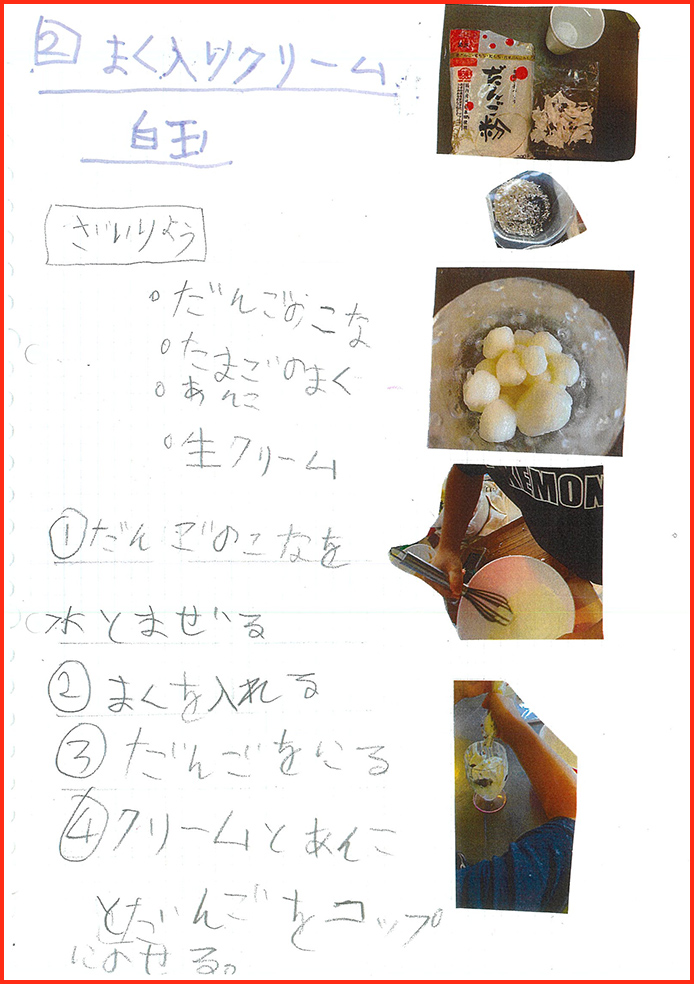 ② まく入りクリーム
白玉
ざいりょう
。だんごのこな
。たまごのまく
。あんこ
。生クリーム
①だんごのこなを
水とまぜる
②まくを入れる
③だんごをにる
④クリームとあんこ
とだんごをコップ
にのせる。
だんご粉
KEMON